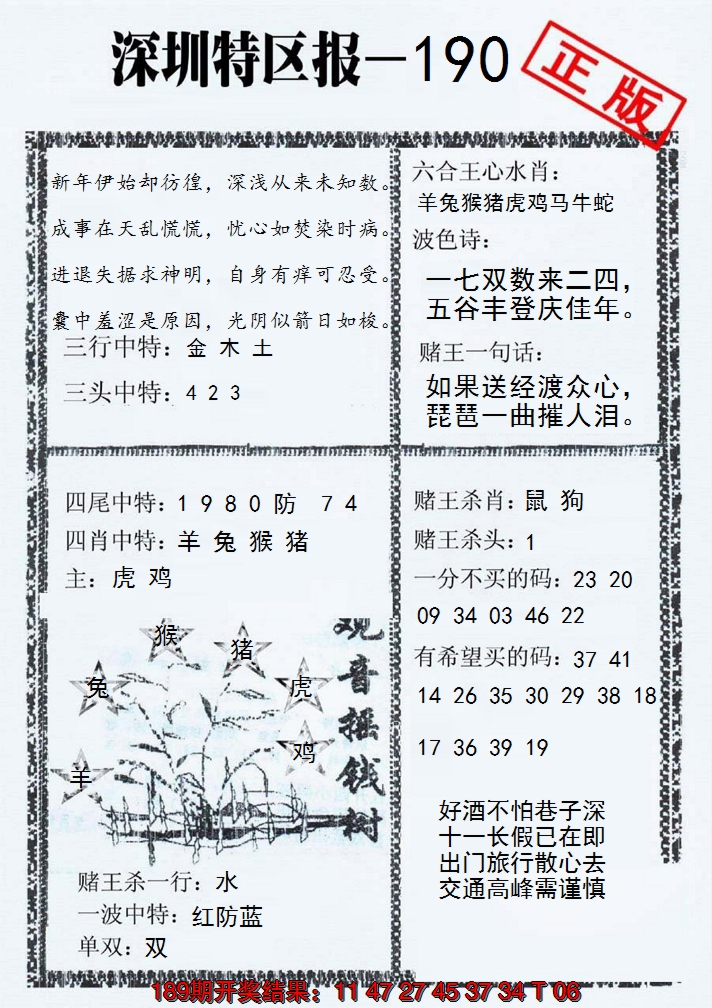 深圳特区报—190
正版
新年伊始却彷徨，深浅从来未知数。
成事在天乱慌慌，忧心如焚染时病。
进退失据求神明，自身有痒可忍受。
囊中羞涩是原因，光阴似箭日如梭。
三行中特：金 木 土
三头中特：4 2 3
六合王心水肖：
羊兔猴猪虎鸡马牛蛇
波色诗：
一七双数来二四，
五谷丰登庆佳年。
赌王一句话：
如果送经渡众心，
琵琶一曲摧人泪。
四尾中特：1 9 8 0 防 7 4
四肖中特：羊 兔 猴 猪
主：虎 鸡
猴
猪
兔
虎
鸡
羊
观音摇钱树
赌王杀一行：水
一波中特：红防蓝
单双：双
赌王杀肖：鼠 狗
赌王杀头：1
一分不买的码：23 20
09 34 03 46 22
有希望买的码：37 41
14 26 35 30 29 38 18
17 36 39 19
好酒不怕巷子深
十一长假已在即
出门旅行散心去
交通高峰需谨慎
189期开奖结果：11 47 27 45 37 34 T 06